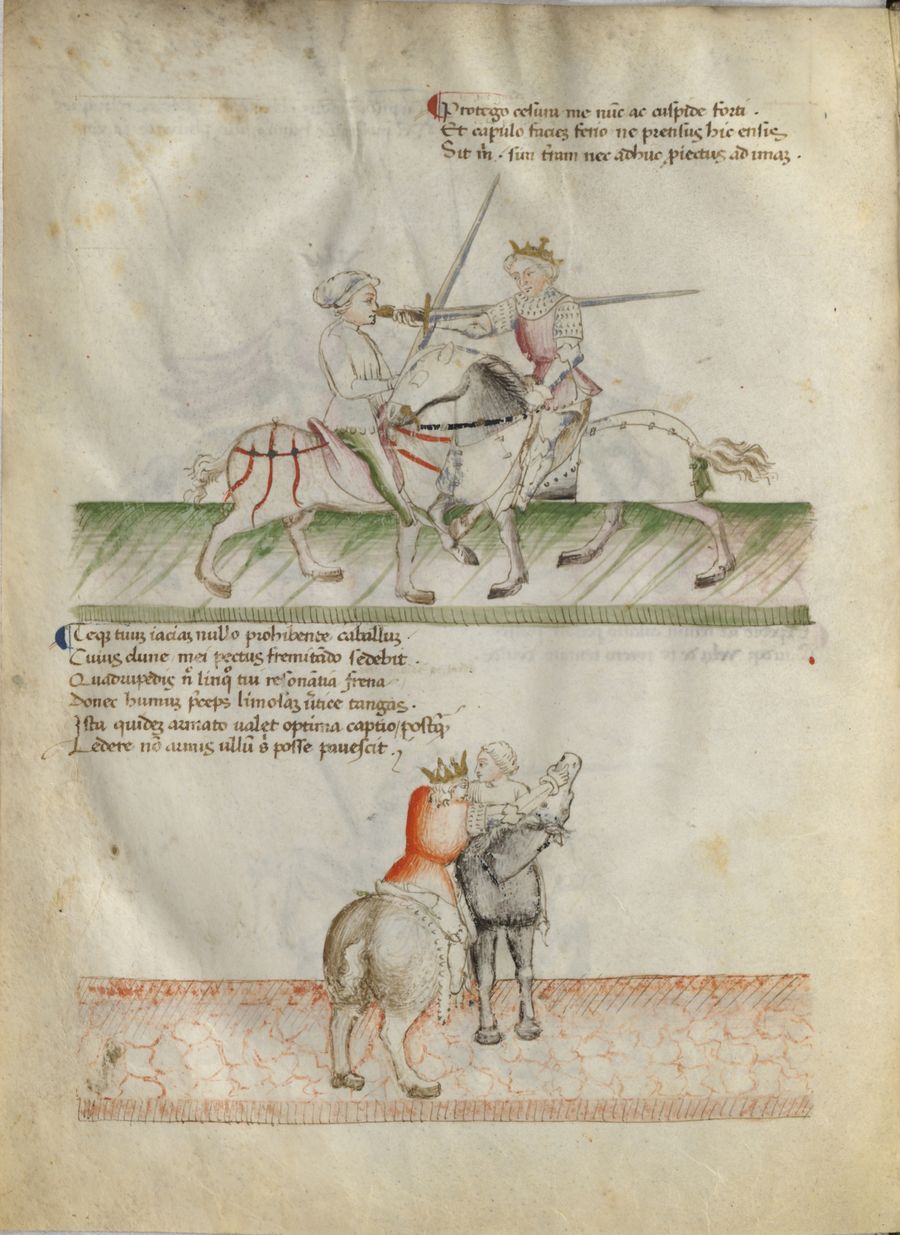 Protego cesum me nūc ac cuspide forti .
Et capulo faciez ferio ne prensus hic ensis
Sit m̄ . sim tr̄am nec adhuc piectus ad imaz .
Teqz tuum iaciaz nullo prohibente caballuz
Cuius clune mei pectus fremitādo sedebit .
Quadrupedis n̄ linq̄o tui resonātia frena
Donec humuz p̄ceps limosaz ūtice tangas .
Ista quidez armato ualet optima captio / postq̄
Ledere nō armis ullū s̄ posse pauescit .